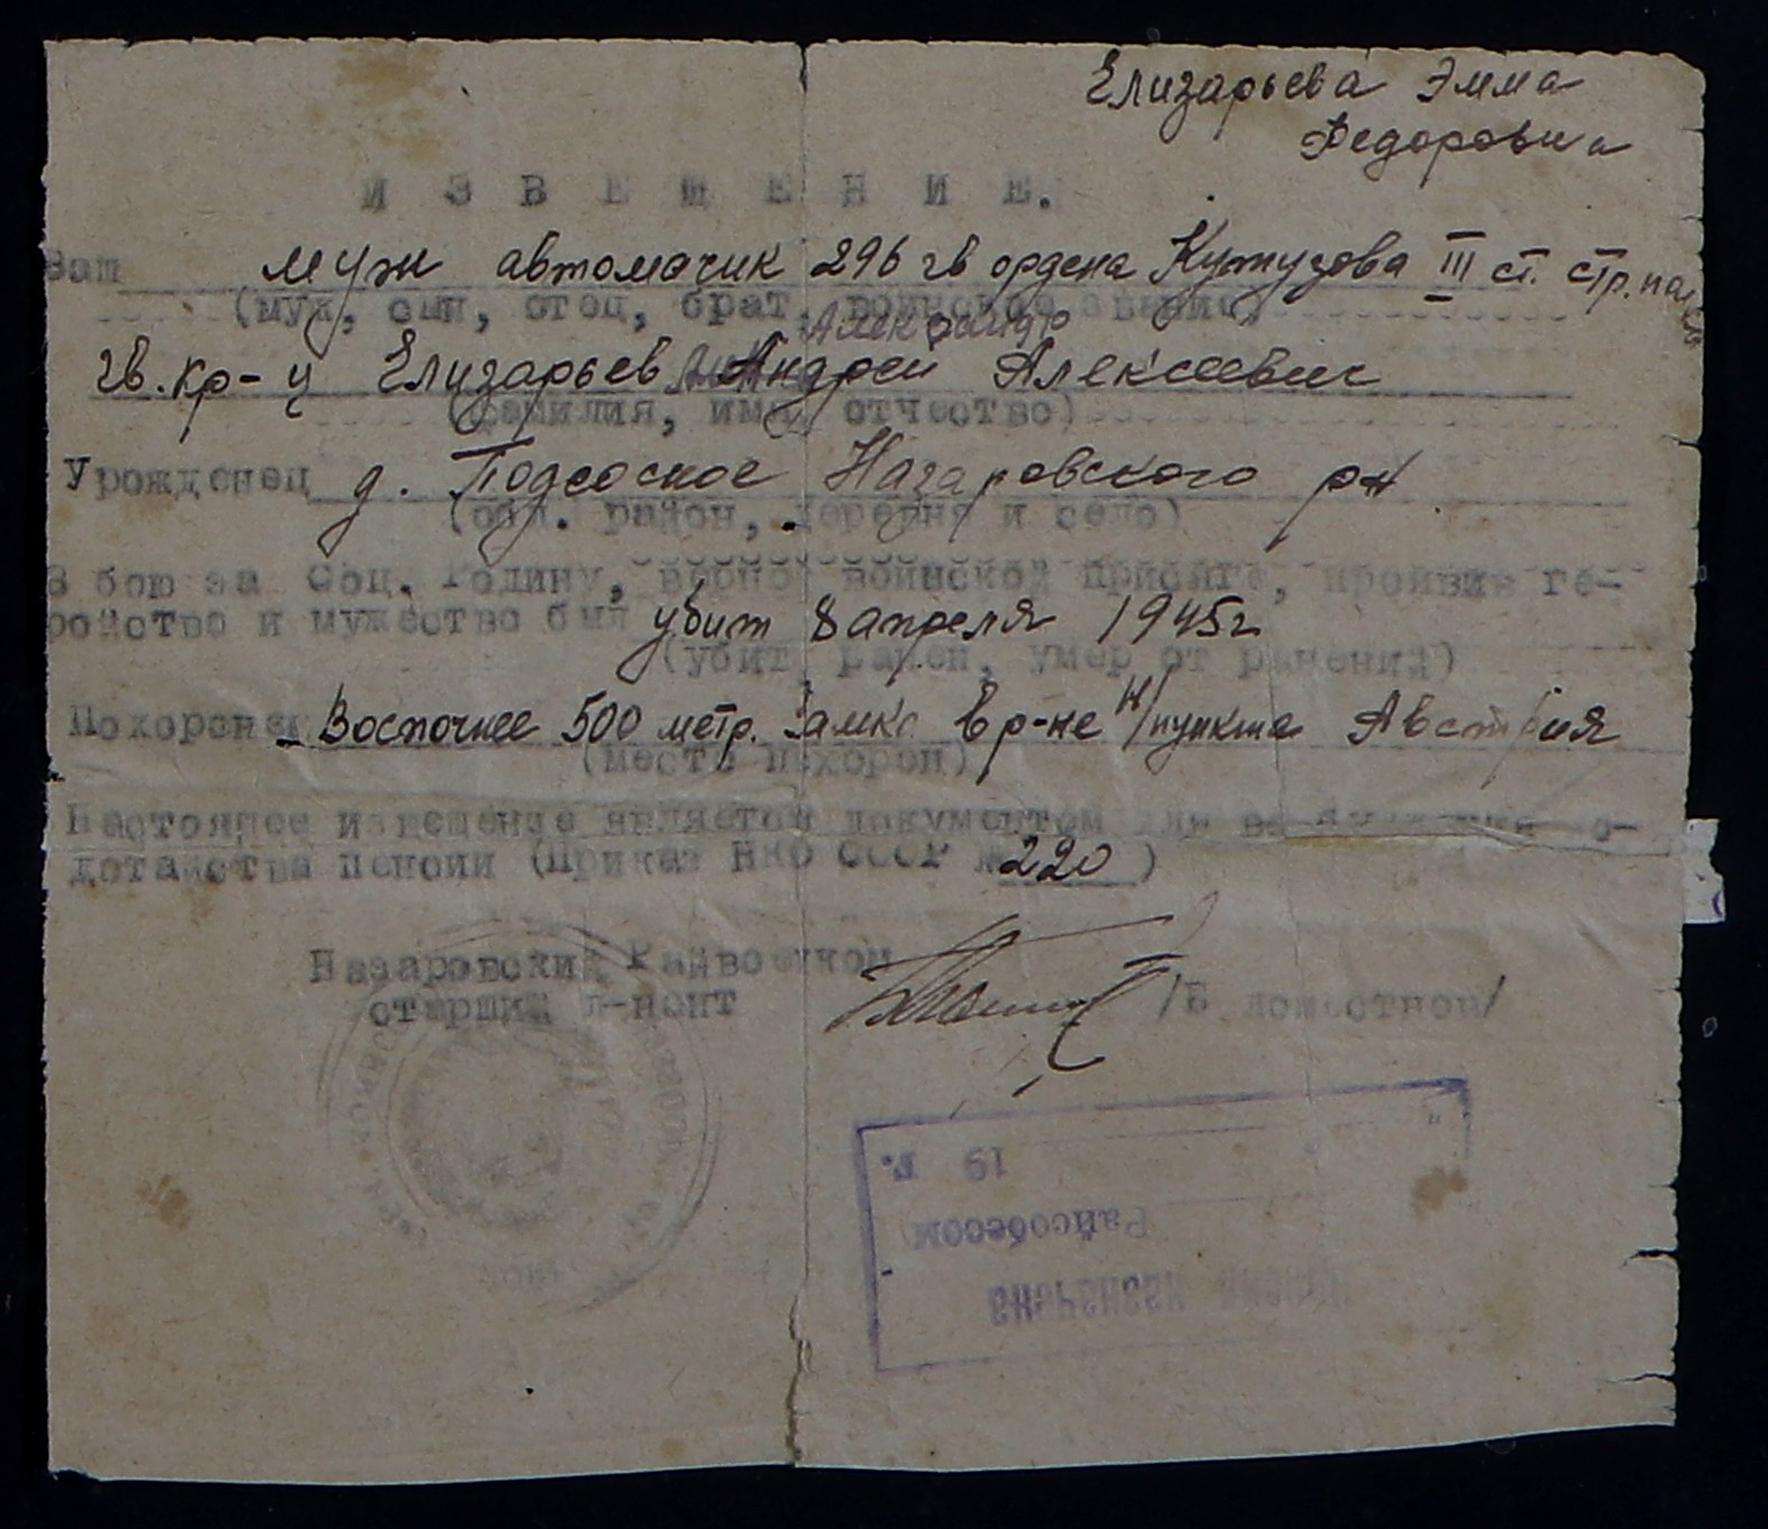 Елизарьева Эмма
Федоровна
ИЗВЕЩЕНИЕ.
Ваш муж автоматчик 296 гв ордена Кутузова III ст. стр. полка
(муж, сын, отец, брат, воинское звание)
Александр
гв. кр-ц Елизарьев Андрей Алексеевич
(фамилия, имя, отчество)
Урожденец д. Подсосное Назаровского р-н
(обл. район, деревня и село)
В бою за Соц. Родину, верной воинской присяге, проявив ге-
ройство и мужество был убит 8 апреля 1945 г
(убит, ранен, умер от ранений)
Похоронен Восточнее 500 метр. Замка в р-не н/пункта Австрия
(место похорон)
Настоящее извещение является документом для
датайства пенсии (Приказ НКО СССР № 220)
Назаровский Райвоенком
старший л-нент
19 г.
Райсобесом
пенсия назначена